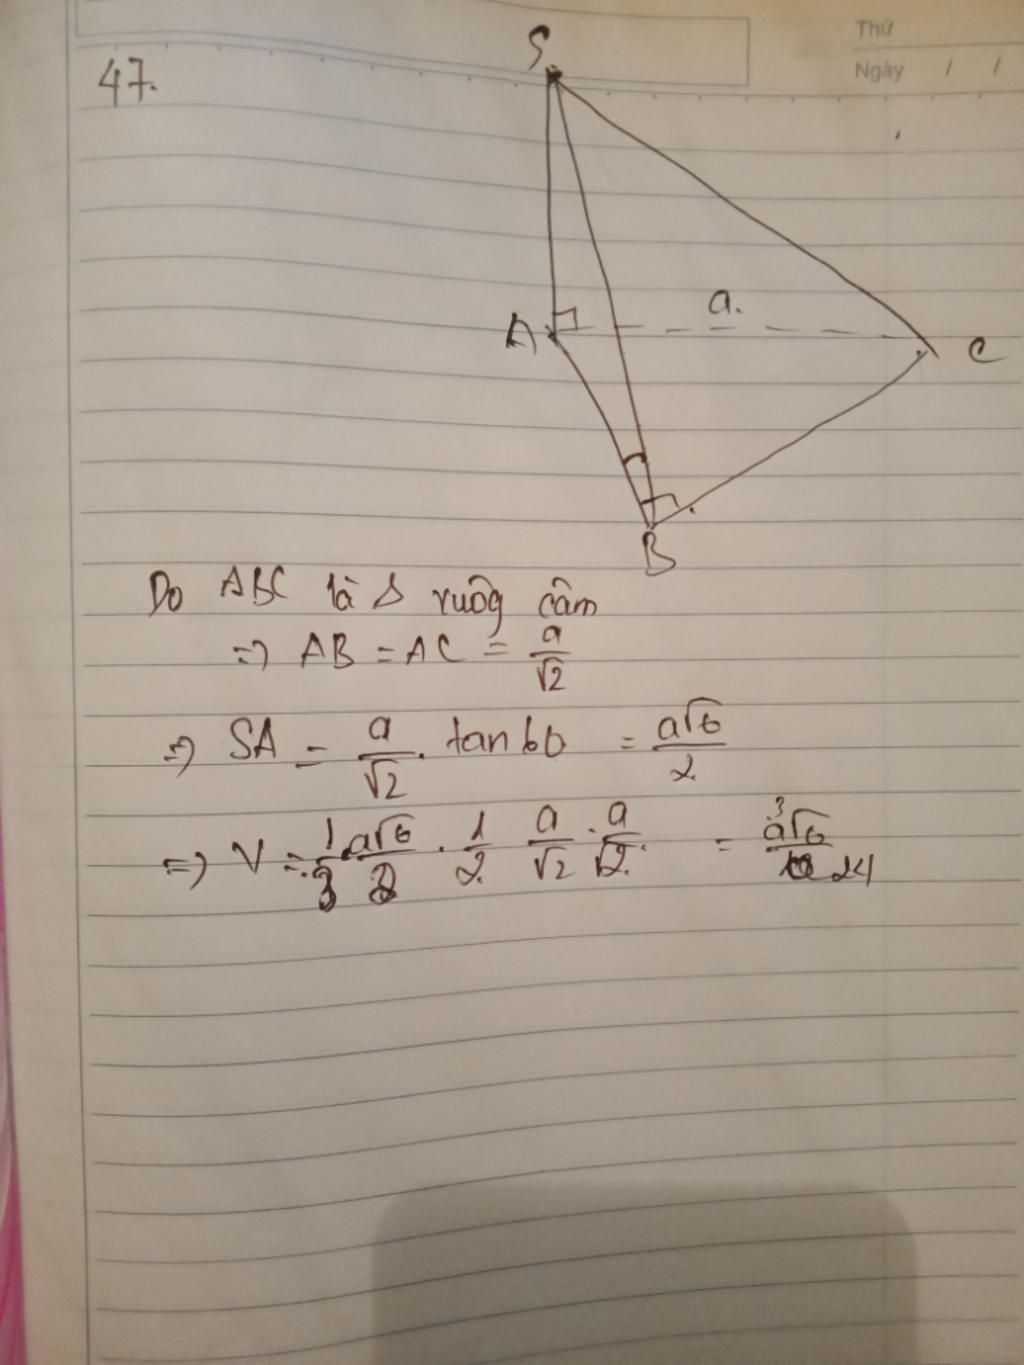 Thứ
Ngày / /
47.
S
A
a.
C
B
Do ABC là Δ vuôg cân
=> AB = AC = a/√2
=> SA = a/√2 . tan 60 = a√6/2
=> V = 1/3 . a√6/2 . 1/2 . a/√2 . a/√2 . = a³√6/24